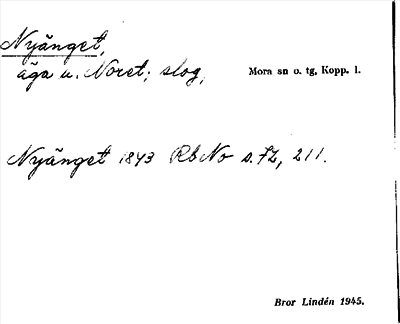 Nyänget,
äga u. Noret; slog,
Mora sn o. tg, Kopp. l.
Nyänget 1843 RbNo s. 72, 211.
Bror Lindén 1945.